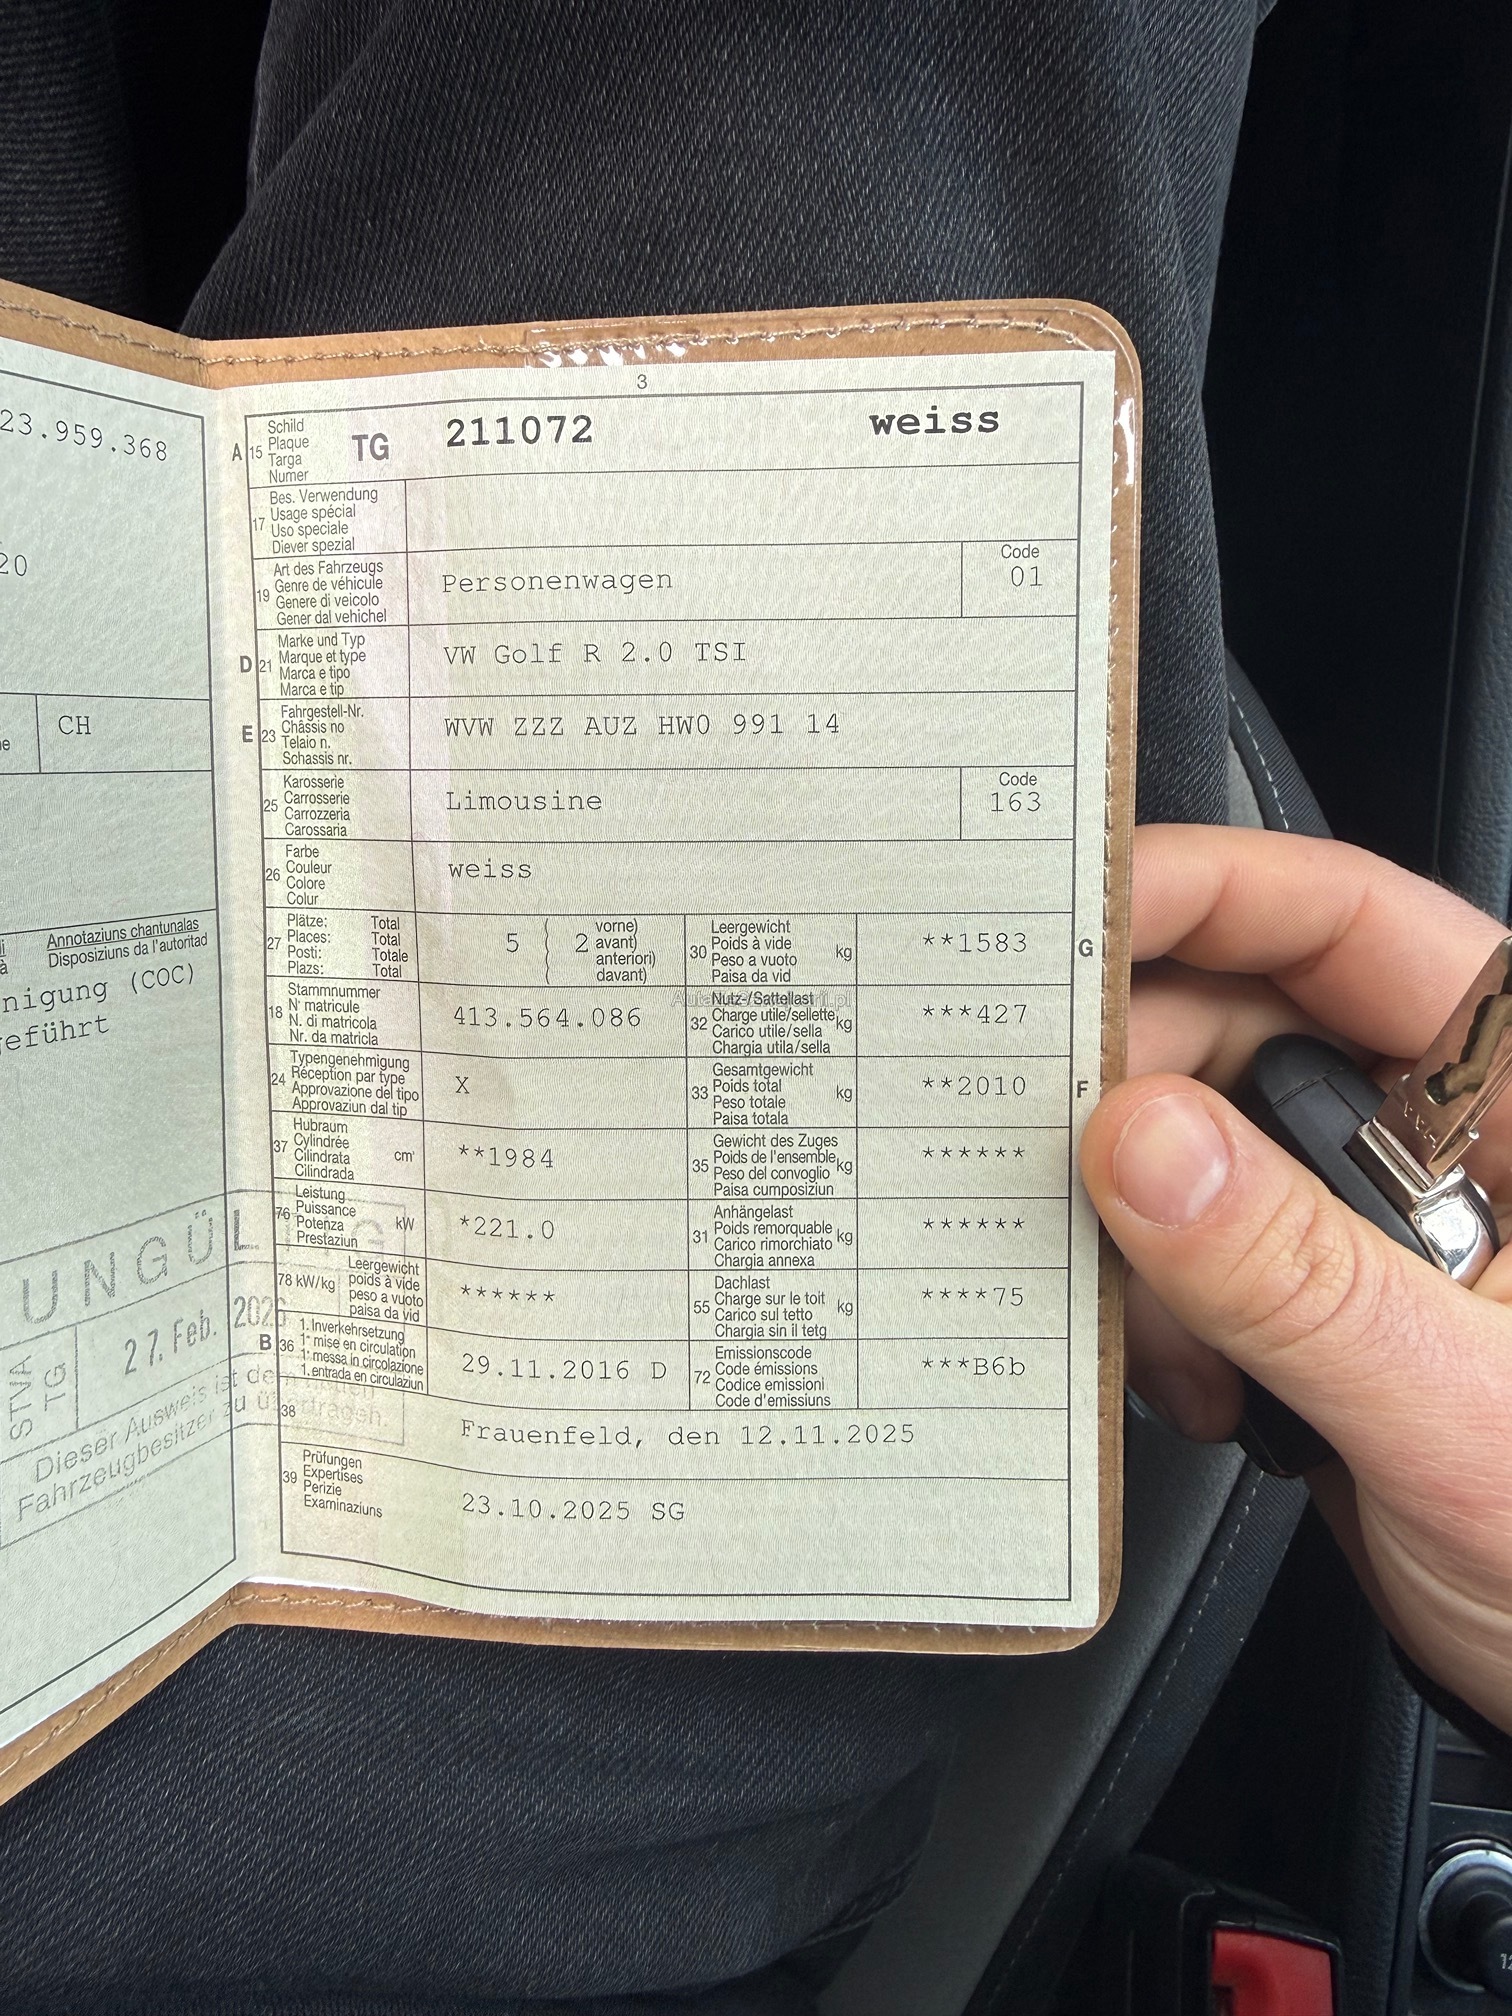 23.959.368
20
CH
ne
Annotaziuns chantunalas
Disposiziuns da l'autoritad
nigung (COC)
eführt
UNGÜL
27. Feb. 202
STVA
TG
Dieser Ausweis ist de
Fahrzeugbesitzer zu übertragen.
3
A 15 Schild
Plaque
Targa
Numer
TG 211072 weiss
17 Bes. Verwendung
Usage spécial
Uso speciale
Diever spezial
19 Art des Fahrzeugs
Genre de véhicule
Genere di veicolo
Gener dal vehichel
Personenwagen
Code
01
D 21 Marke und Typ
Marque et type
Marca e tipo
Marca e tip
VW Golf R 2.0 TSI
E 23 Fahrgestell-Nr.
Châssis no
Telaio n.
Schassis nr.
WVW ZZZ AUZ HW0 991 14
25 Karosserie
Carrosserie
Carrozzeria
Carossaria
Limousine
Code
163
26 Farbe
Couleur
Colore
Colur
weiss
27 Plätze: Total
Places: Total
Posti: Totale
Plazs: Total
5 ( 2 vorne)
avant)
anteriori)
davant)
30 Leergewicht
Poids à vide
Peso a vuoto
Paisa da vid
kg **1583 G
18 Stammnummer
N° matricule
N. di matricola
Nr. da matricla
413.564.086
32 Nutz-/Sattellast
Charge utile/sellette
Carico utile/sella
Chargia utila/sella
kg ***427
24 Typengenehmigung
Réception par type
Approvazione del tipo
Approvaziun dal tip
X
33 Gesamtgewicht
Poids total
Peso totale
Paisa totala
kg **2010 F
37 Hubraum
Cylindrée
Cilindrata
Cilindrada
cm³ **1984
35 Gewicht des Zuges
Poids de l'ensemble
Peso del convoglio
Paisa cumposiziun
kg ******
76 Leistung
Puissance
Potenza
Prestaziun
kW *221.0
31 Anhängelast
Poids remorquable
Carico rimorchiato
Chargia annexa
kg ******
78 kW/kg Leergewicht
poids à vide
peso a vuoto
paisa da vid
******
55 Dachlast
Charge sur le toit
Carico sul tetto
Chargia sin il tetg
kg ****75
B 36 1. Inverkehrsetzung
1e mise en circulation
1a messa in circolazione
1. entrada en circulaziun
29.11.2016 D
72 Emissionscode
Code émissions
Codice emissioni
Code d'emissiuns
***B6b
38
Frauenfeld, den 12.11.2025
39 Prüfungen
Expertises
Perizie
Examinaziuns
23.10.2025 SG
12